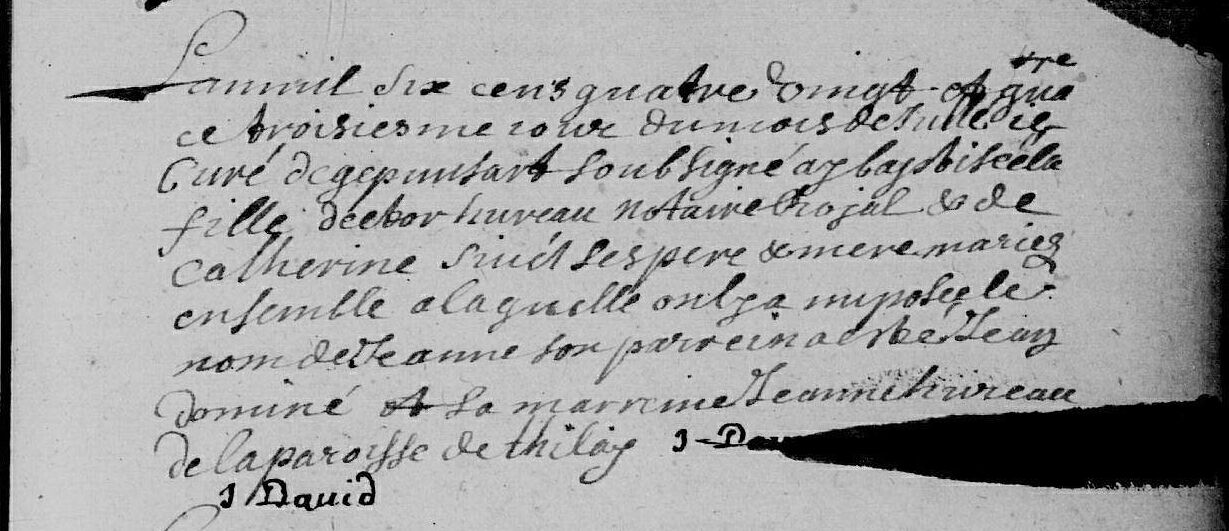 Lan mil six cens quatre vingt et qua
tre
ce troisiesme iour du mois de Iullet ie
Curé de gepunsart soubsigné ay baptisée la
fille de ector hureau notaire roial & de
Catherine sес pere & mere mariez
ensemble a laquelle on lya imposée le
nom de Jeanne son parrein a esté Jean
dominé et sa marreine Jeanne hureau
de la paroisse de thilay J Da
J David